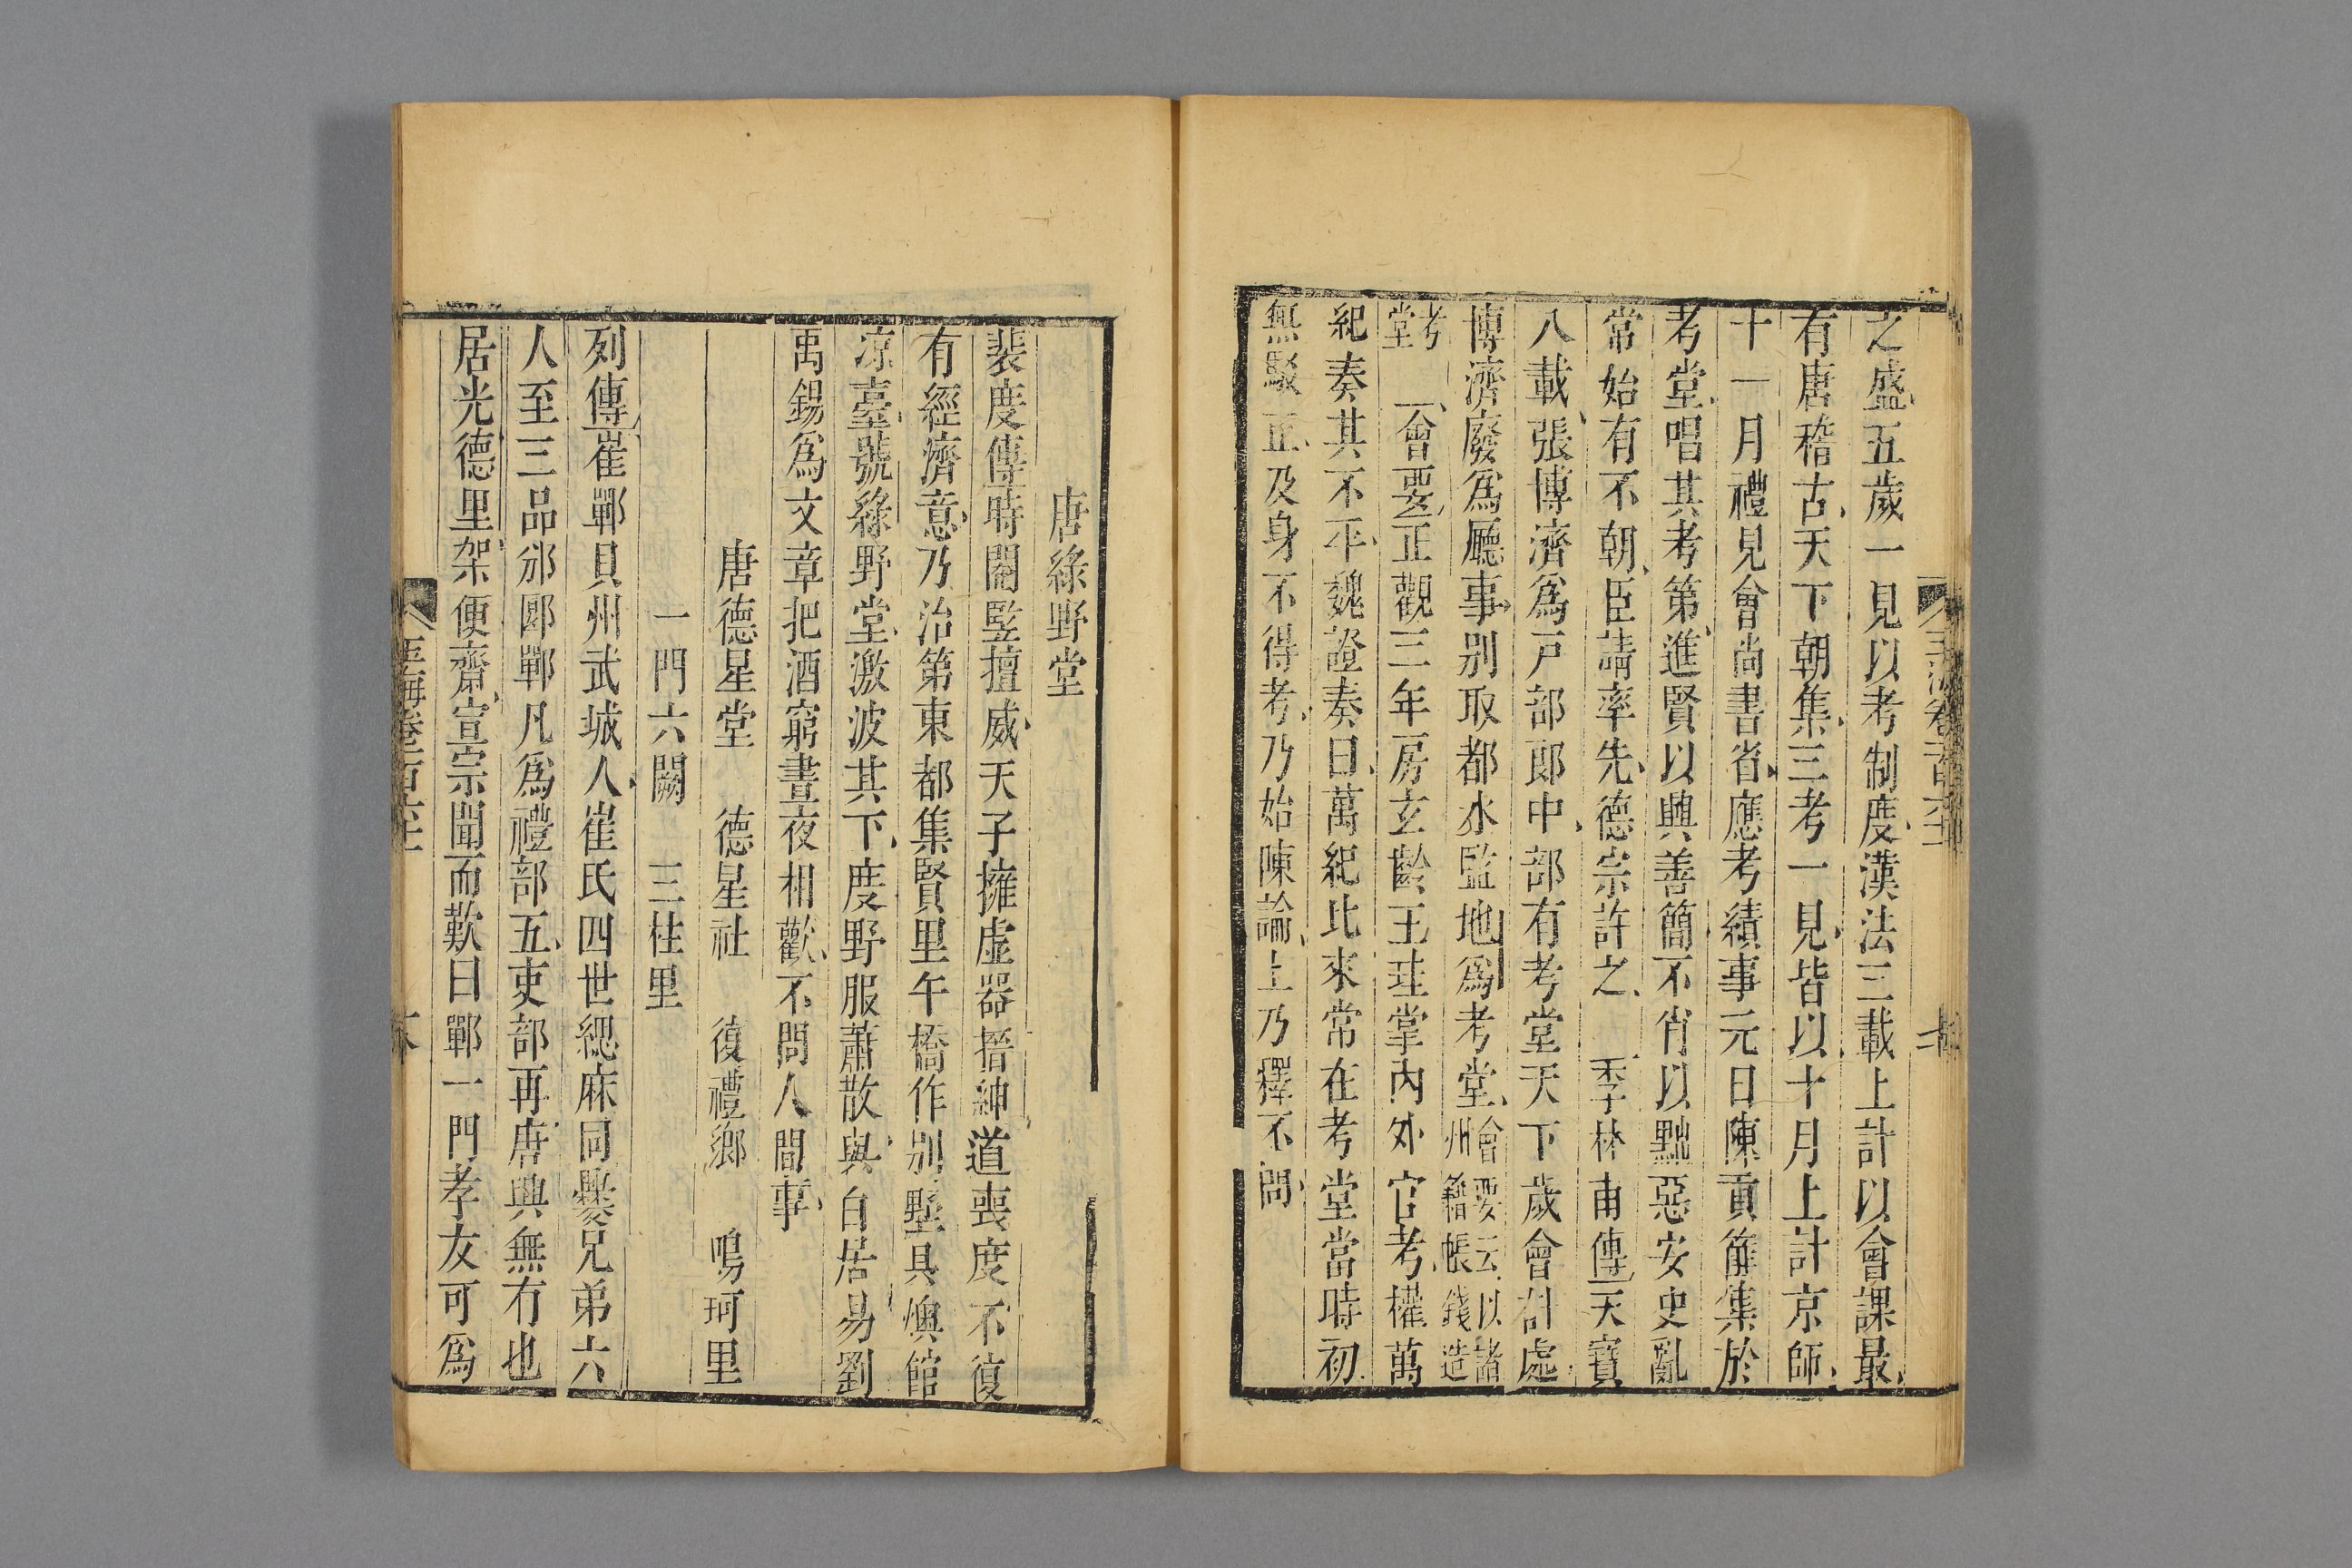 之盛五歲一見以考制度漢法三載上計以會課最
有唐稽古天下朝集三考一見皆以十月上計京師
十一月禮見會尚書省應考績事元日陳貢篚集於
考堂唱其考第進賢以興善簡不肖以黜惡安史亂
常始有不朝臣請率先德宗許之　李林甫傳天寶
八載張博濟爲戸部郎中部有考堂天下歲會計處
博濟廢爲廳事别取都水監地爲考堂會要云以諸州籍帳錢造
考堂　會要正觀三年房玄齡王珪掌內外官考權萬
紀奏其不平魏證奏曰萬紀比來常在考堂當時初
無駁正及身不得考乃始陳論上乃釋不問
唐綠野堂
裴度傳時閹豎擅威天子擁虛器搢紳道喪度不復
有經濟意乃治第東都集賢里午橋作别墅具燠館
涼臺號綠野堂激波其下度野服蕭散與白居易劉
禹錫爲文章把酒窮晝夜相歡不問人間事
唐德星堂　德星社　復禮鄉　鳴珂里
一門六闕　三桂里
列傳崔鄲貝州武城人崔氏四世緦麻同爨兄弟六
人至三品邠郾鄲凡爲禮部五吏部再唐興無有也
居光德里架便齋宣宗聞而歎曰鄲一門孝友可爲